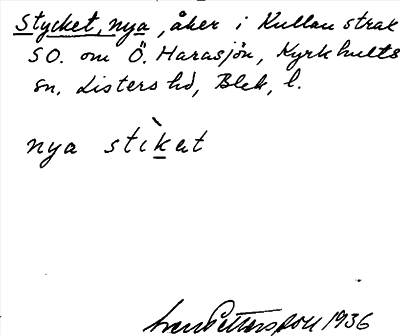 Stycket, nya, åker i Kullan strax
SO. om Ö. Harasjön, Kyrkhults
sn. Listers hd, Blek, l.
nya stìket
Sven Pettersson 1936